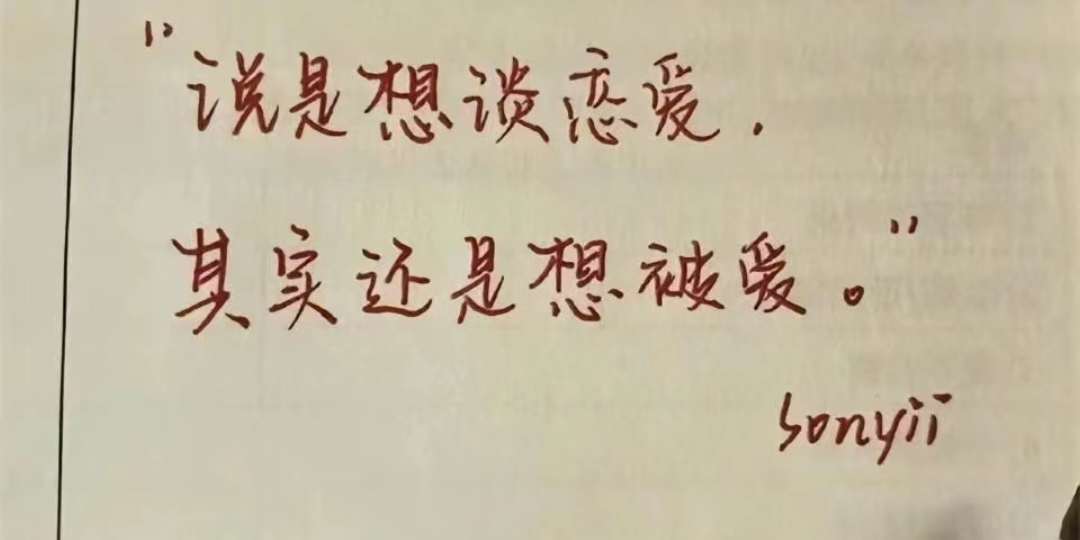 "说是想谈恋爱.
其实还是想被爱。"
sonyii